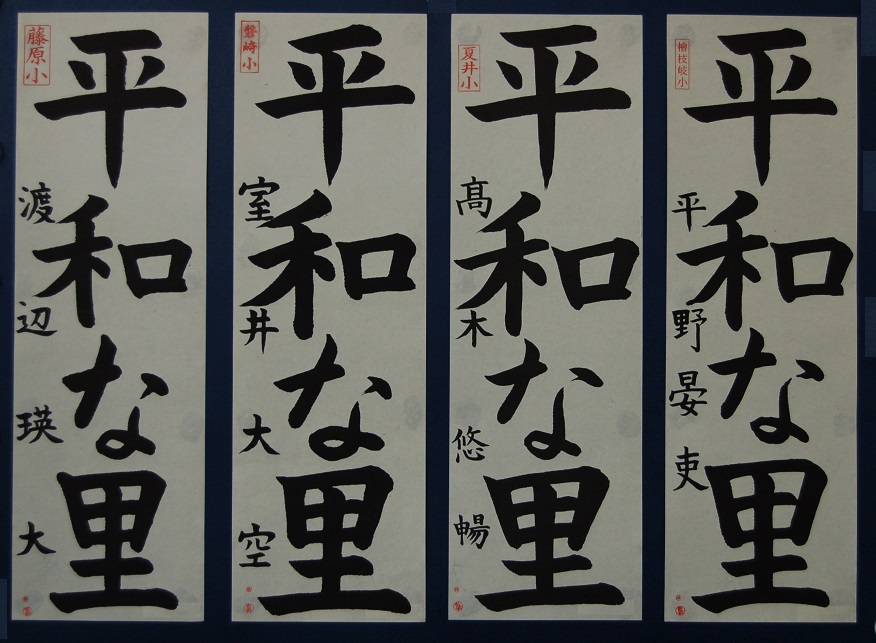 藤原小
平和な里
渡辺瑛大
磐崎小
平和な里
室井大空
夏井小
平和な里
髙木悠暢
檜枝岐小
平和な里
平野晏吏